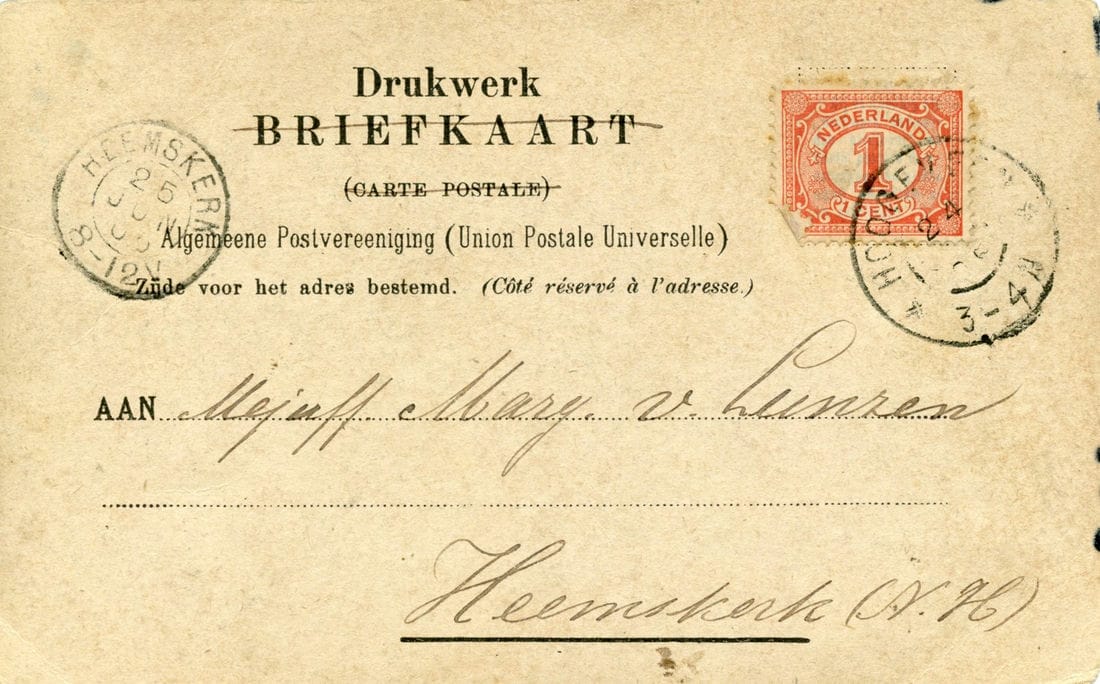 Drukwerk
BRIEFKAART
(CARTE POSTALE)
Algemeene Postvereeniging (Union Postale Universelle)
Zijde voor het adres bestemd. (Côté réservé à l'adresse.)
NEDERLAND
1
1 CENT
HEEMSKERK
25
JUN
8-12V
24
3-4 N
AAN Mejuff. Marg. v. Lunzen
Heemskerk (N.H)